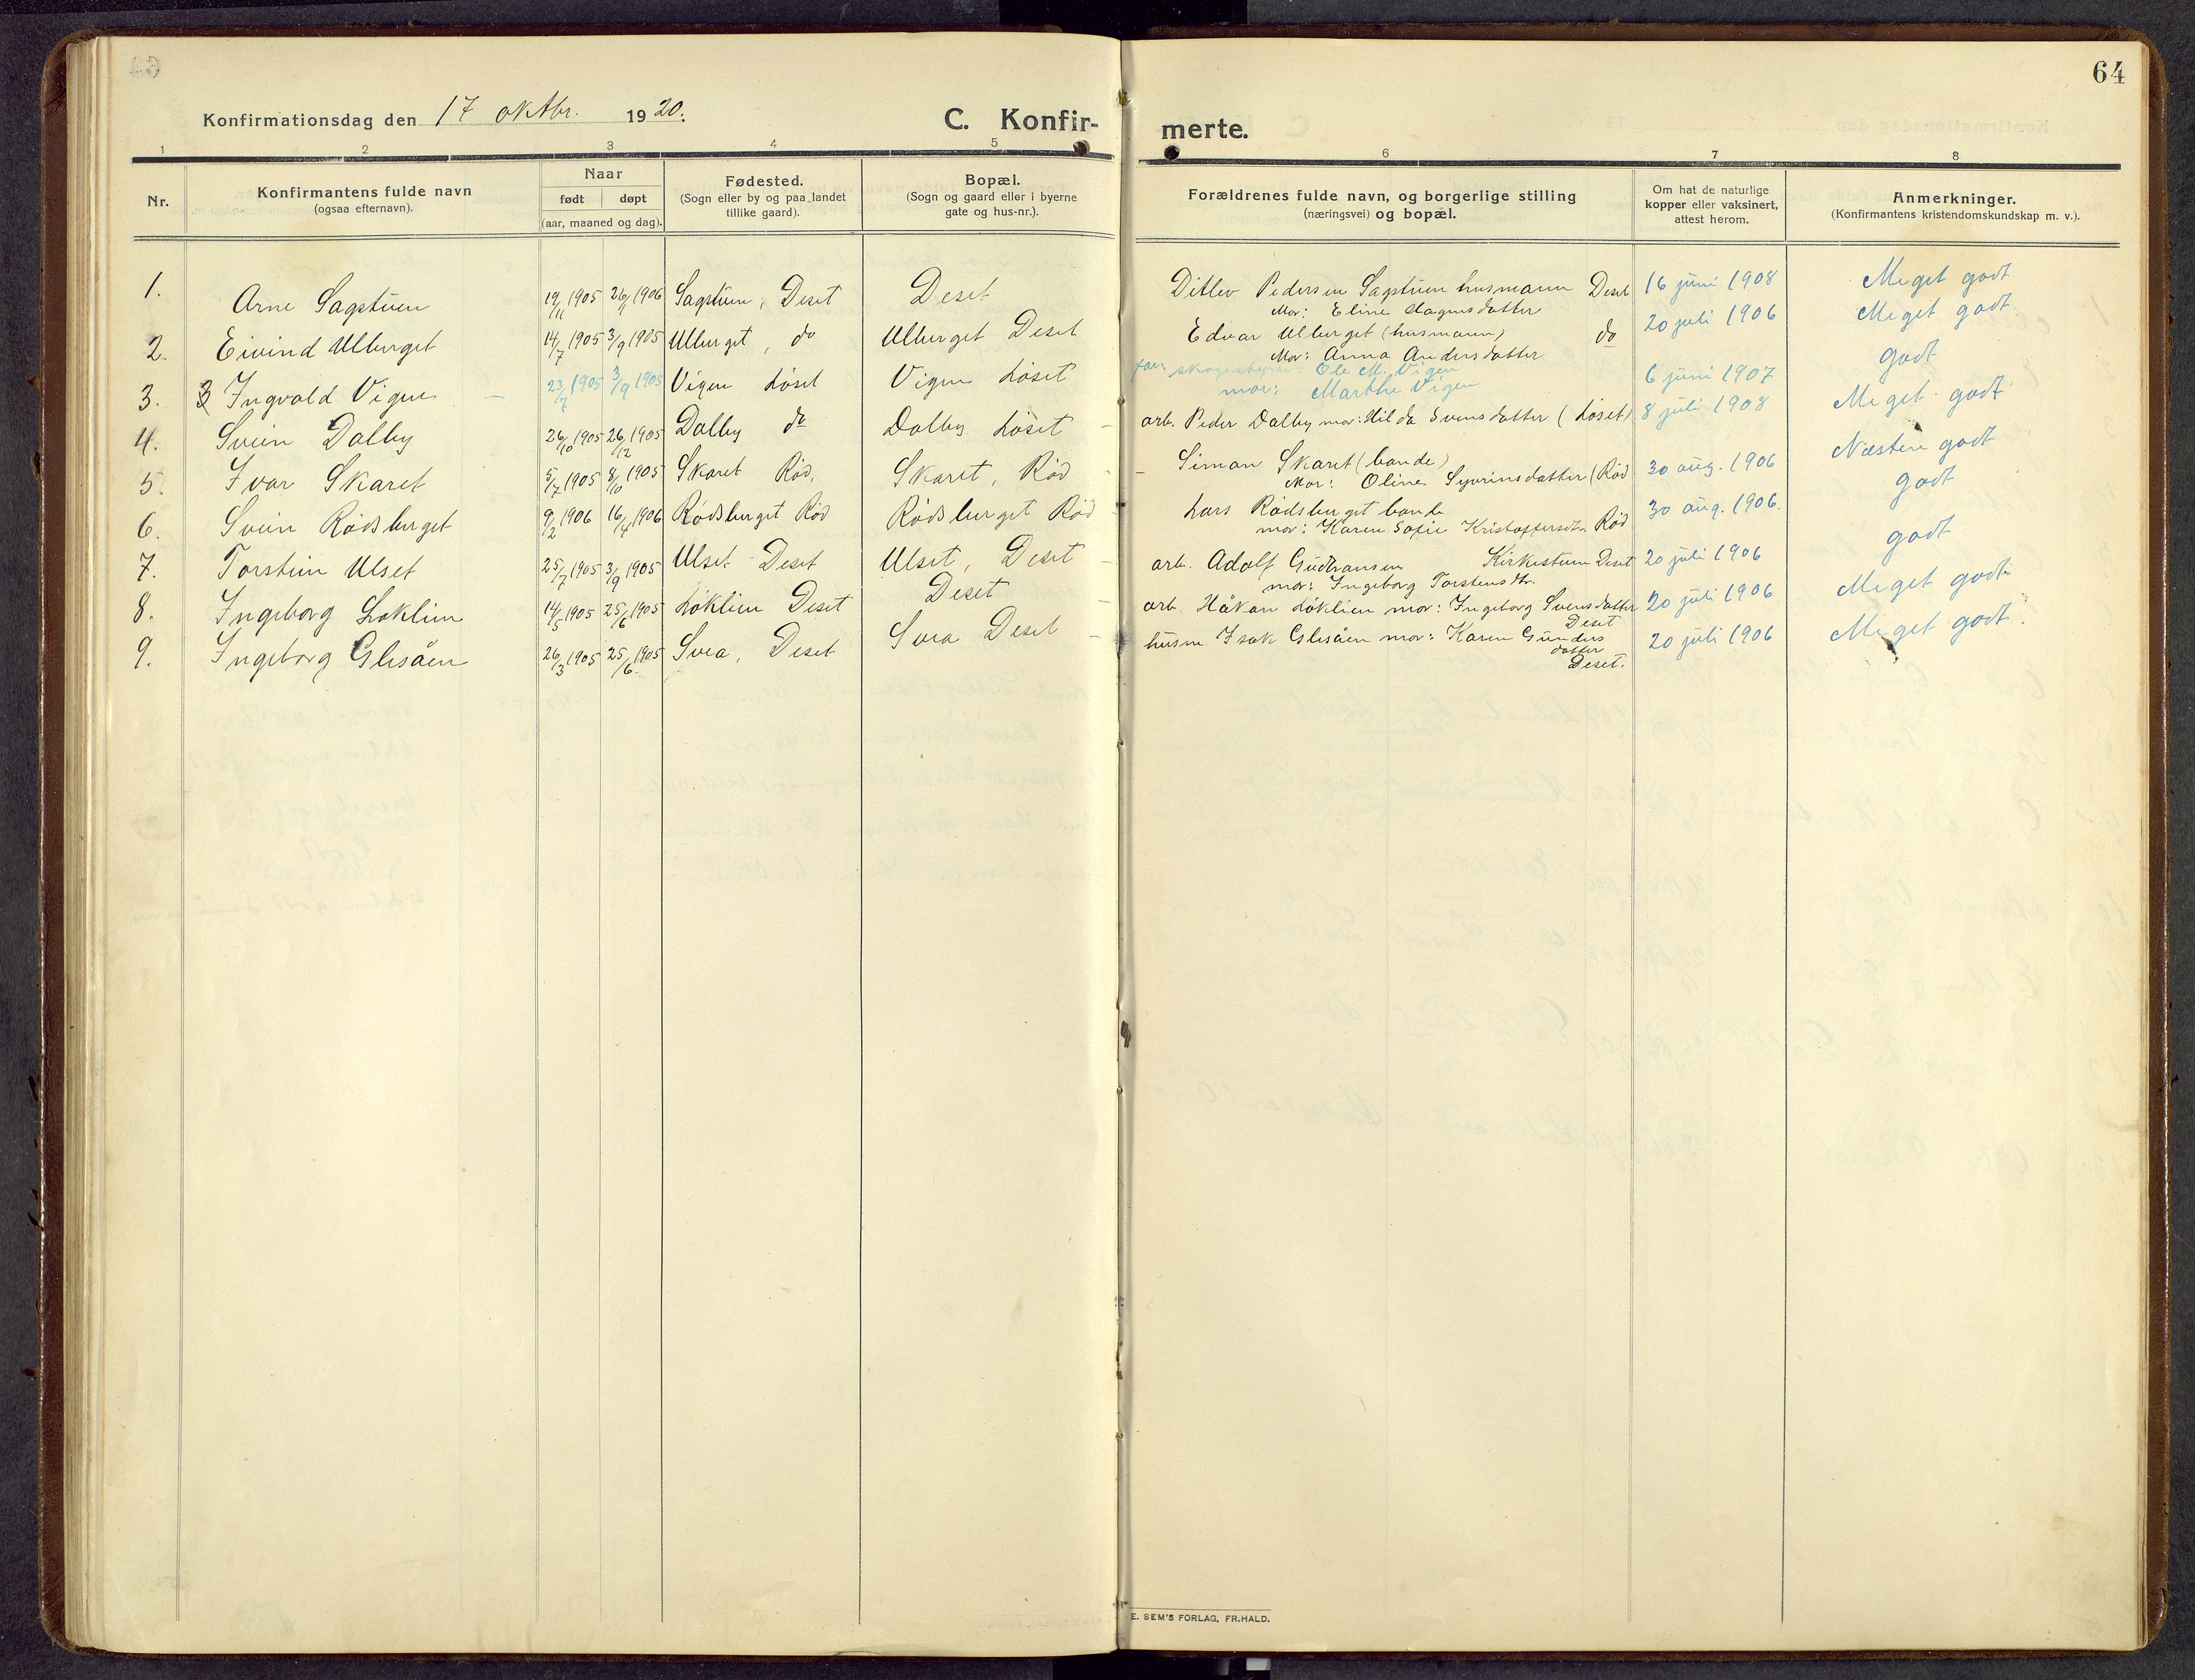 64
Konfirmationsdag den 17 oktbr. 1920.
C. Konfir-
merte.
1 2 3 4 5 6 7 8
Nr.
Konfirmantens fulde navn
(ogsaa efternavn).
Naar
født døpt
(aar, maaned og dag).
Fødested.
(Sogn eller by og paa landet
tillike gaard).
Bopæl.
(Sogn og gaard eller i byerne
gate og hus-nr.).
Forældrenes fulde navn, og borgerlige stilling
(næringsvei) og bopæl.
Om hat de naturlige
kopper eller vaksinert,
attest herom.
Anmerkninger.
(Konfirmantens kristendomskundskap m. v.).
1. Arne Sagstuen 19/11 1905 1906 Sagstuen, Deset Deset Ditlev Pedersen Sagstuen husmann Deset 16 juni 1908 Meget godt
Mor: Eline Magnusdatter
2. Eivind Ulberget 14/7 1905 3/9 1905 Ulberget, do Ulberget Deset Edvar Ulberget (husmann) do 20 juli 1906 Meget godt.
Mor: Anna Andersdatter
3. 3 Ingvald Vigen 23/7 1905 3/9 1905 Vigen Løset Vigen Løset far: Ole M. Vigen 6 juni 1907 godt
mor: Marthe Vigen
4. Svein Dalby 26/10 1905 26/12 1905 Dalby do Dalby Løset arb. Peder Dalby mor: Hilda Svensdatter (Løset) 8 juli 1908 Meget godt
5. Ivar Skaret 5/7 1905 8/10 1905 Skaret Rød, Skaret, Rød Simon Skaret (bonde) 30 aug. 1906 Næsten godt
Mor: Oline Syverinsdatter (Rød
6. Svein Rødsberget 9/2 1906 16/4 1906 Rødsberget Rød Rødsberget Rød Lars Rødsberget bonde 30 aug. 1906. godt
mor: Karen Sofie Kristoffersdtr. Rød
7. Torstein Ulset 25/7 1905 3/9 1905 Ulset Deset Ulset, Deset arb. Adolf Gudbransen Kirkestuen Deset 20 juli 1906 godt
mor: Ingeborg Torstensdtr.
8. Ingeborg Løklien 14/5 1905 25/6 1905 Løklien Deset Deset arb. Håkan Løklien mor: Ingeborg Svensdatter 20 juli 1906 Meget godt
Deset
9. Ingeborg Glesåen 26/3 1905 25/6 1905 Svea, Deset Svea Deset husm Isak Glesåen mor: Karen Gunders 20 juli 1906 Meget godt.
datter
Deset.
E. SEM'S FORLAG, FR.HALD.